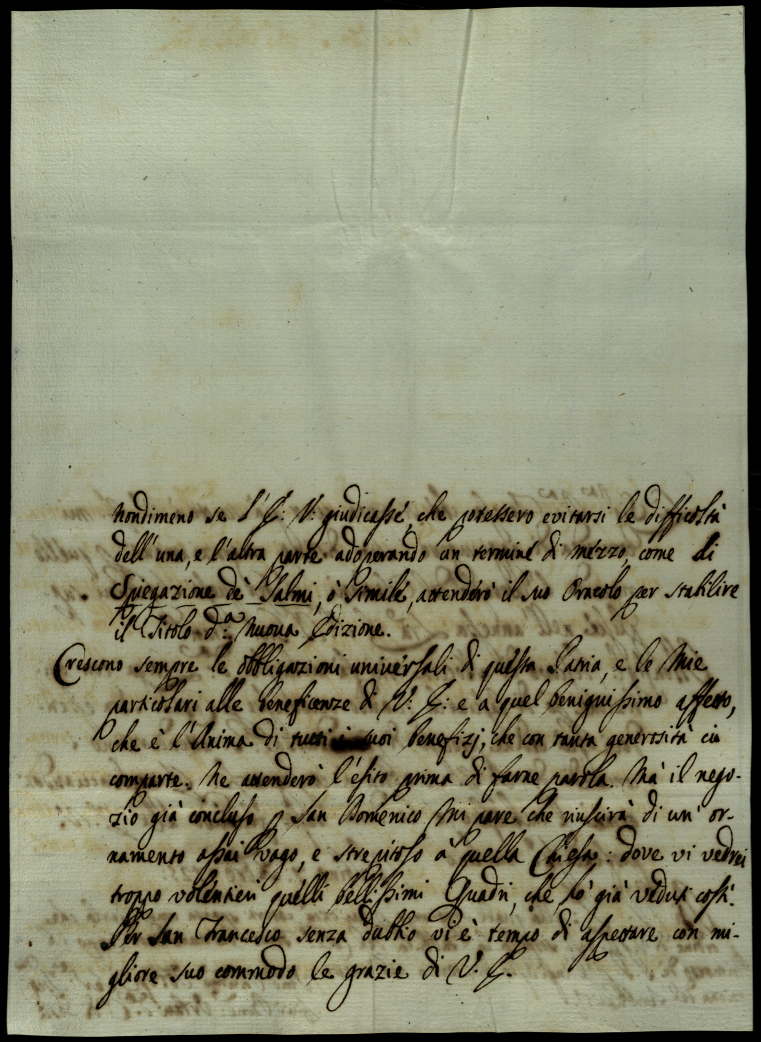 nondimeno se l'E: V: giudicasse, che potessero evitarsi le difficoltà
dell'una, e l'altra parte adoperando un terminé di mézzo, come di
Spiegazione de' Salmi, ò simile, attenderò il suo Oracolo per stabilire
il Titolo d.ª Nuova Edizione.
Crescono sempre le obbligazioni universali di questa Patria, e le Mie
particolari alle beneficenze di V: E: e a quel benignissimo affetto,
che è l'Anima di tutti i suoi benefizj, che con tanta generosità ci
comparte. Ne attenderò l'esito prima di farne parola. Mà il nego-
zio già concluso San Domenico mi pare che riuscirà di un' or-
namento assai vago, e strepitoso à quella Chiesa: dove vi vedrei
troppo volentieri quelli bellissimi Quadri, che hò già veduti costì.
Per San Francesco senza dubbio vi è tempo di aspettare con mi-
gliore suo commodo le grazie di V. E.